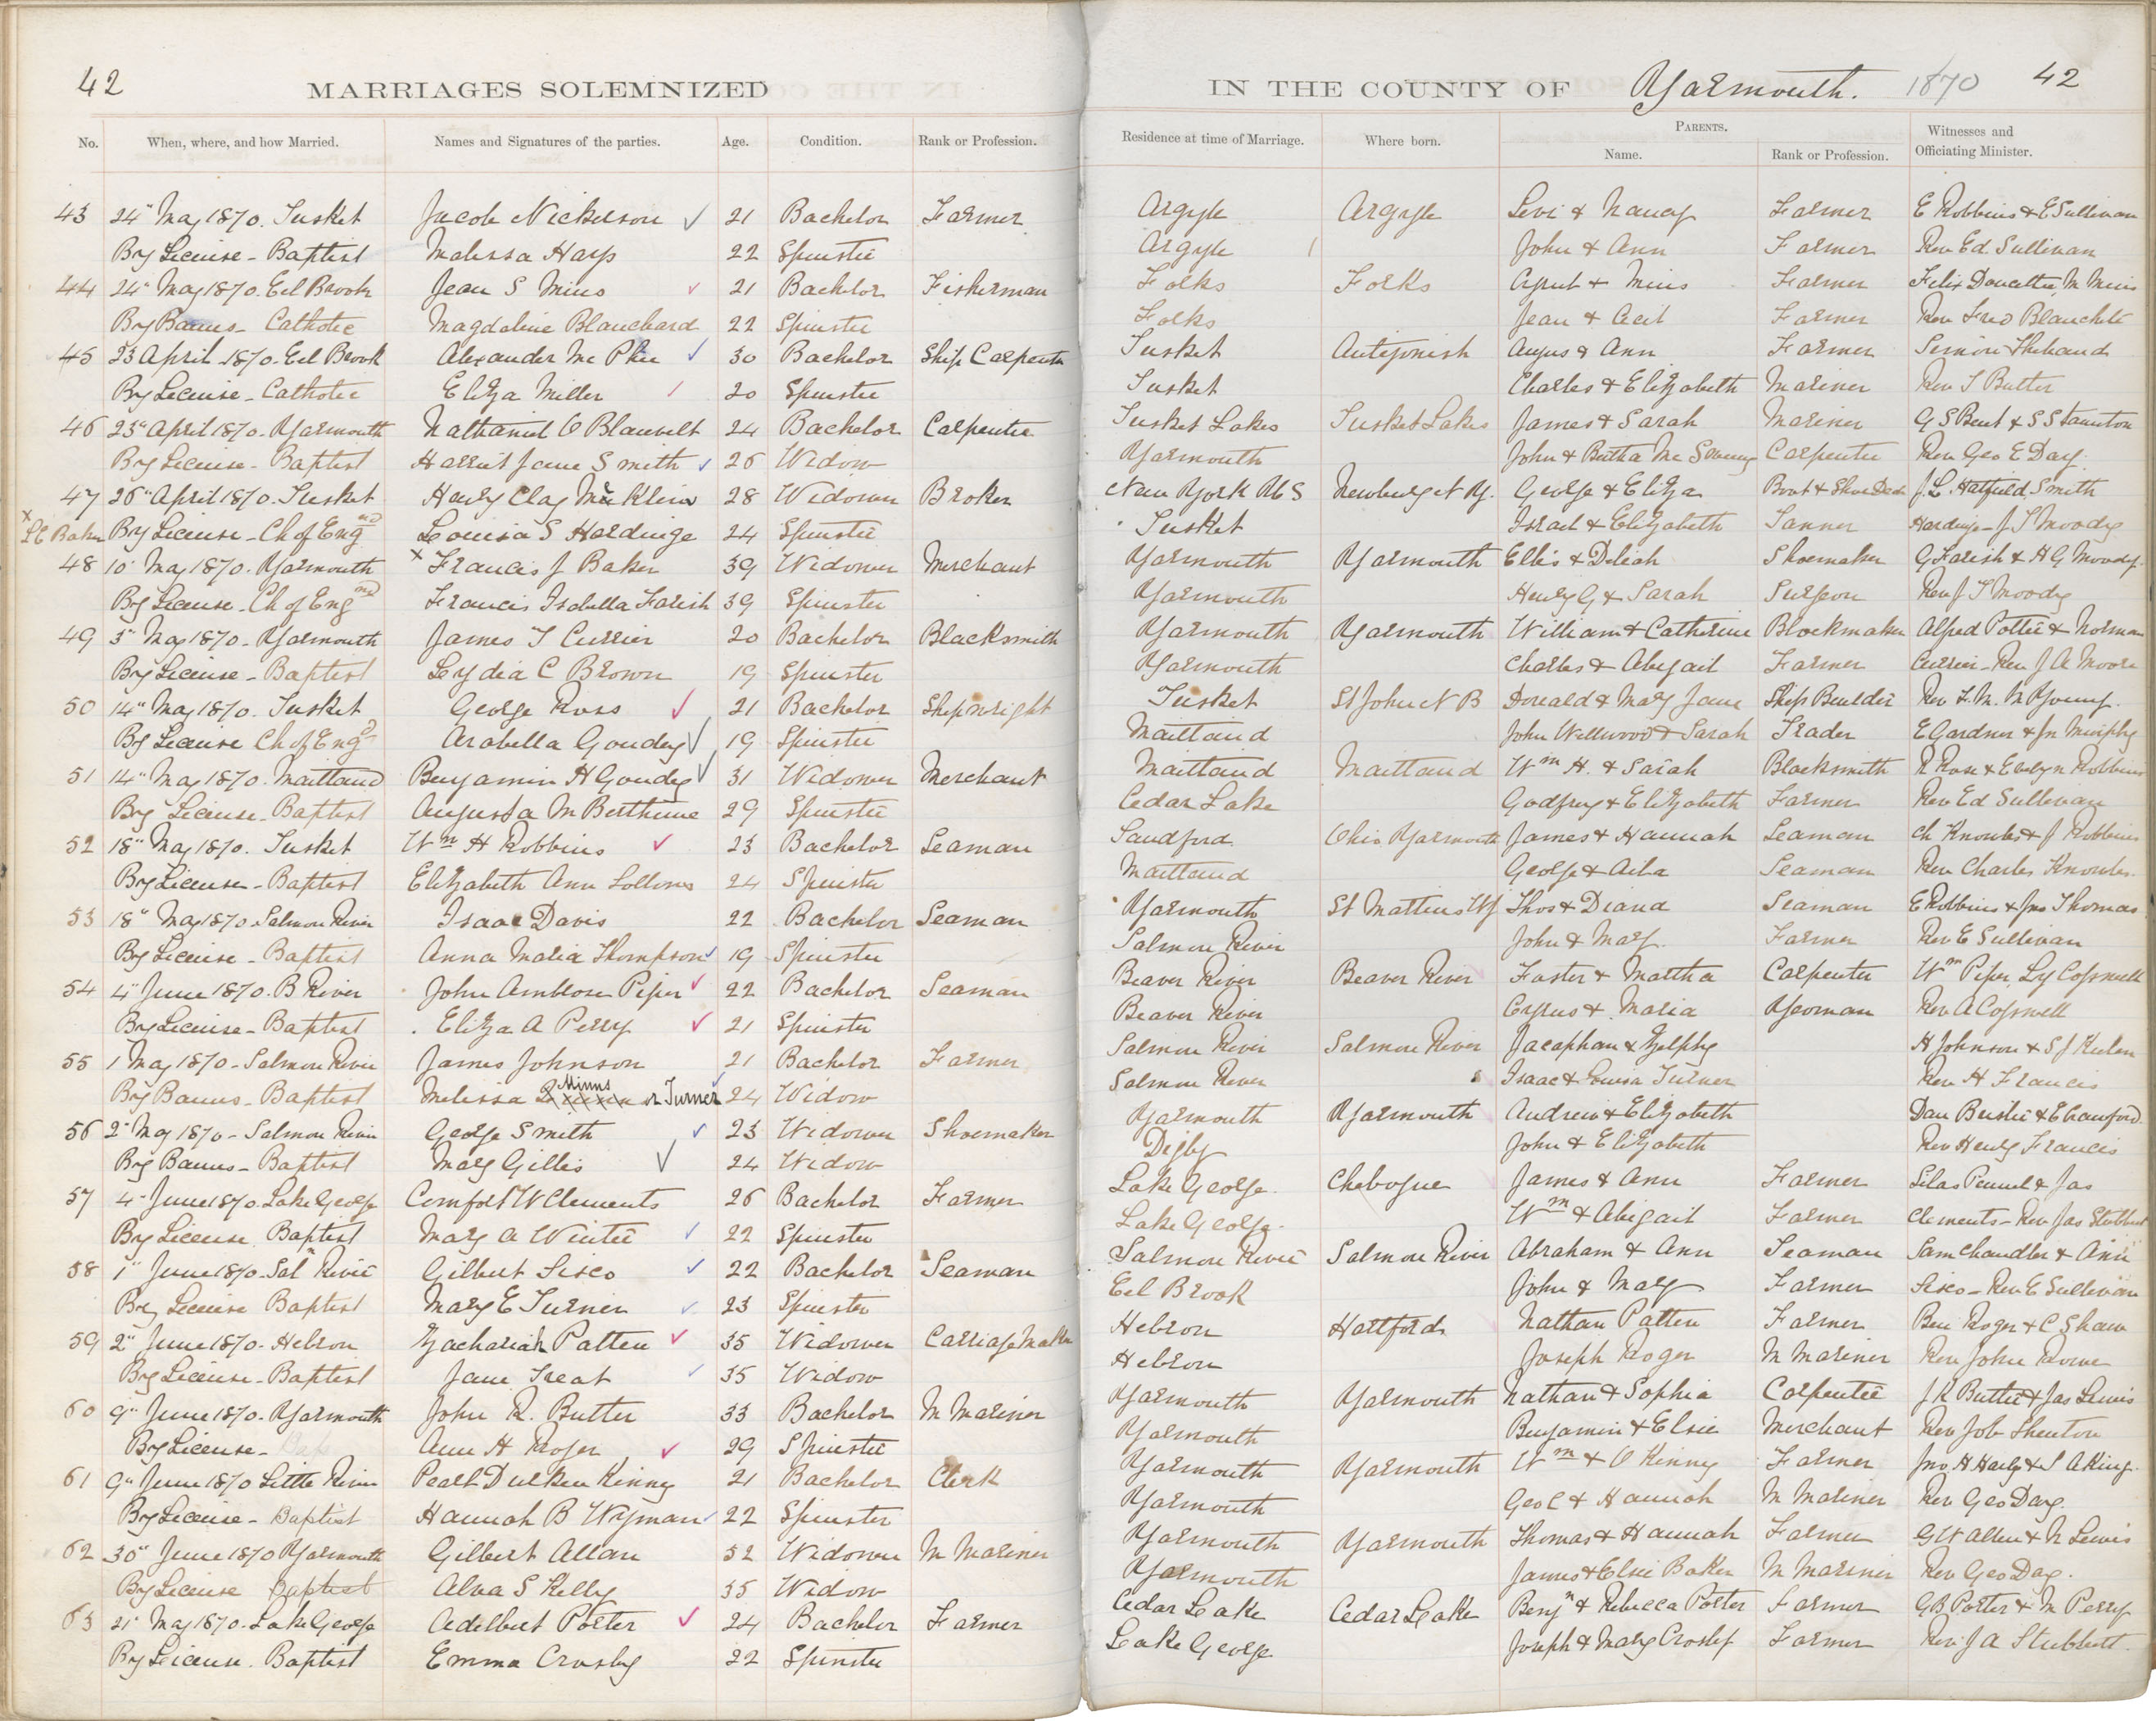 42
MARRIAGES SOLEMNIZED
IN THE COUNTY OF Yarmouth. 1870 42
No. When, where, and how Married. Names and Signatures of the parties. Age. Condition. Rank or Profession. Residence at time of Marriage. Where born. PARENTS. Name. Rank or Profession. Witnesses and Officiating Minister.
43 24" May 1870. Tusket Jacob Nickerson 21 Bachelor Farmer Argyle Argyle Levi & Nancy Farmer E Robbins & E Sullivan
By License - Baptist Malissa Hays 22 Spinster Argyle John & Ann Farmer Rev Ed. Sullivan
44 24" May 1870. Eel Brook Jean S Mius 21 Bachelor Fisherman Forks Forks & Mius Farmer Felix Doucette, M Mius
By Banns - Catholic Magdaline Blanchard 22 Spinster Forks Jean & Farmer Rev Fred Blanchete
45 23 April 1870. Eel Brook Alexander Mc Phee 30 Bachelor Ship Carpenter Tusket Antigonish Angus & Ann Farmer Simon Thibaud
By License - Catholic Eliza Miller 20 Spinster Tusket Charles & Elizabeth Mariner Rev Butler
46 25" April 1870. Yarmouth Nathaniel O Blauvelt 24 Bachelor Carpenter Tusket Lakes Tusket Lakes James & Sarah Mariner G S Bent & S Staunton
By License - Baptist Harriet Jane Smith 26 Widow Yarmouth John & Carpenter Rev Geo E Day.
47 26" April 1870. Tusket Henry Clay 28 Widower Broker New York U S Newburg N Y. George & Eliza Boot & Shoe J. L. Hatfield, Smith
x L C Baker By License - Ch of Eng nd Louisa S Hardinge 24 Spinster Tusket Israel & Elizabeth Tanner Hardinge - J T Moody
48 10" May 1870. Yarmouth x Francis J Baker 39 Widower Merchant Yarmouth Yarmouth Ellis & Deliah Shoemaker G Farish & H G Moody.
By License - Ch of Eng nd Francis Isabella Farish 39 Spinster Yarmouth Henry G & Sarah Surgeon Rev J T Moody
49 3" May 1870 - Yarmouth James T Currier 20 Bachelor Blacksmith Yarmouth Yarmouth William & Catherine Blockmaker Alfred Potter & Norman
By License - Baptist Lydia C Brown 19 Spinster Yarmouth Charles & Abigail Farmer Currier - Rev J A Moore
50 14" May 1870. Tusket George Ross 21 Bachelor Shipwright Tusket St John N B Donald & Mary Jane Ship Builder Rev Young.
By License Ch of Eng d Arabella Goudey 19 Spinster Maitland John Wellwood & Sarah Trader E Gardner & Jn Murphy
51 14" May 1870. Maitland Benjamin H Goudey 31 Widower Merchant Maitland Maitland Wm H. & Sarah Blacksmith R Rose & Evelyn Robbins
By License - Baptist Augusta M Berthune 29 Spinster Cedar Lake Godfrey & Elizabeth Farmer Rev Ed Sullivan
52 18" May 1870. Tusket Wm H Robbins 23 Bachelor Seaman Sandford Ohio, Yarmouth James & Hannah Seaman Ch Knowles & J Robbins
By License - Baptist Elizabeth Ann Sollows 24 Spinster Maitland George & Seaman Rev Charles Knowles.
53 18" May 1870. Salmon River Isaac Davis 22 Bachelor Seaman Yarmouth St Thos & Diana Seaman E Robbins & Jno Thomas
By License - Baptist Anna Maria Thompson 19 Spinster Salmon River John & Mary. Farmer Rev E Sullivan
54 4" June 1870. B River John Ambrose Piper 22 Bachelor Seaman Beaver River Beaver River Foster & Martha Carpenter Wm Piper, Cogswell
By License - Baptist Eliza A Perry 21 Spinster Beaver River Cyrus & Maria Yeoman Rev A Cogswell
55 1 May 1870 - Salmon River James Johnson 21 Bachelor Farmer Salmon River Salmon River & Zelphy H Johnson & S J
By Banns - Baptist Melissa Minns or Turner 24 Widow Salmon River Isaac & Louisa Turner Rev H Francis
56 2" May 1870 - Salmon River George Smith 23 Widower Shoemaker Yarmouth Yarmouth Andrew & Elizabeth Dan & E Crawford.
By Banns - Baptist Mary Gillis 24 Widow Digby John & Elizabeth Rev Henry Francis
57 4" June 1870. Lake George Comfort W Clements 26 Bachelor Farmer Lake George. Chebogue James & Ann Farmer Silas & Jas
By License Baptist Mary A Winter 22 Spinster Lake George. Wm & Abigail Farmer Clements - Rev Jas Stubbert
58 1" June 1870. Saln River Gilbert Sisco 22 Bachelor Seaman Salmon River Salmon River Abraham & Ann Seaman Sam Chandler & Ann
By License Baptist Mary E Turner 23 Spinster Eel Brook John & Mary Farmer Sisco - Rev E Sullivan
59 2" June 1870. Hebron Zachariah Patten 35 Widower Carriage Maker Hebron Hartford Nathan Patten Farmer Ben Roger & C Shaw
By License - Baptist Jane Treat 35 Widow Hebron Joseph Roger M Mariner Rev John Rowe
60 9" June 1870. Yarmouth John R. Butler 33 Bachelor M Mariner Yarmouth Yarmouth Nathan & Sophia Carpenter J R Butler & Jas Lewis
By License - Ann H Roger 29 Spinster Yarmouth Benjamin & Elsie Merchant Rev Job Shenton
61 9" June 1870 Little River Pearl Durkee Kinney 21 Bachelor Clerk Yarmouth Yarmouth Wm & O Kinney Farmer Jno. H Harly & S A King.
By License - Baptist Hannah B Wyman 22 Spinster Yarmouth Geo C & Hannah M Mariner Rev Geo Day.
62 30" June 1870 Yarmouth Gilbert Allan 52 Widower M Mariner Yarmouth Yarmouth Thomas & Hannah Farmer G W Allen & N Lewis
By License Baptist Alva S Kelly 35 Widow Yarmouth James & Elsie Baker M Mariner Rev Geo Day.
63 21" May 1870. Lake George Adelbert Porter 24 Bachelor Farmer Cedar Lake Cedar Lake Benjn & Rebecca Porter Farmer G B Porter & M Perry
By License. Baptist Emma Crosby 22 Spinster Lake George Joseph & Mary Crosby Farmer Rev J A Stubbert.